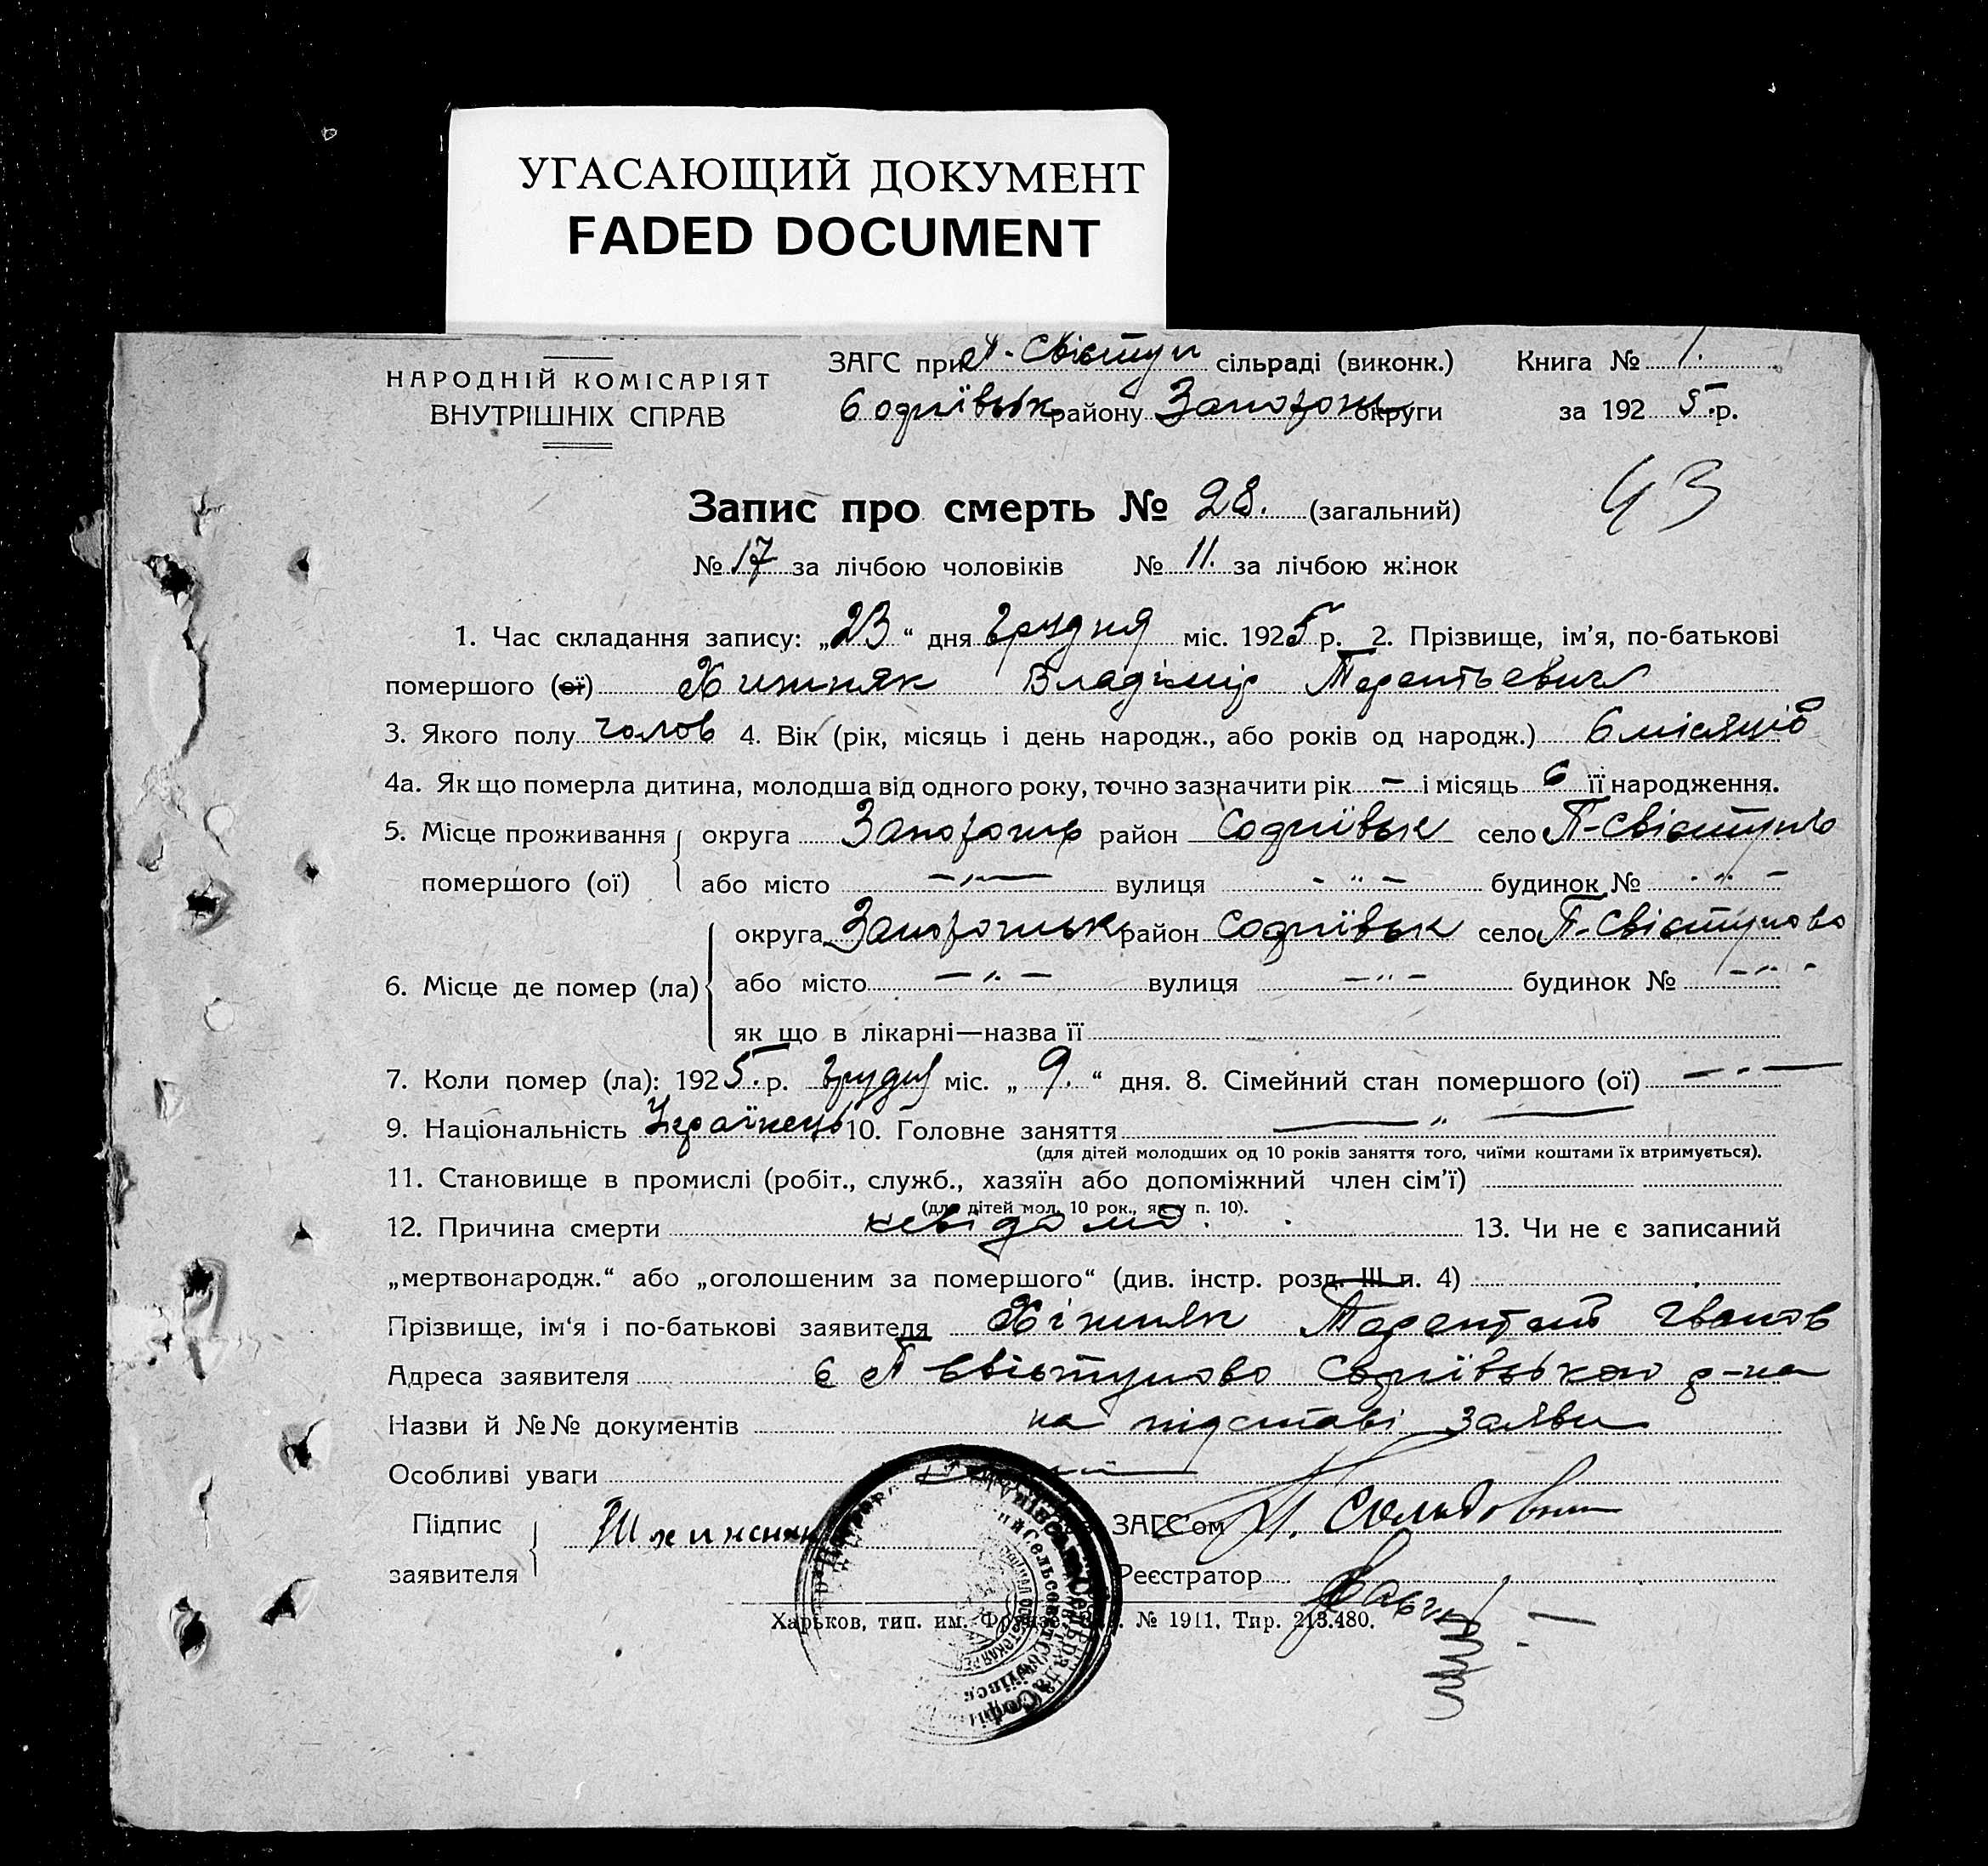 УГАСАЮЩИЙ ДОКУМЕНТ
FADED DOCUMENT
НАРОДНІЙ КОМІСАРІЯТ
ВНУТРІШНІХ СПРАВ
ЗАГС при П-Свістун сільраді (виконк.) Книга № 1.
Софиївськ району Запорож округи за 1925 р.
43
Запис про смерть № 28. (загальний)
№ 17 за лічбою чоловіків № 11. за лічбою жінок
1. Час складання запису: „23“ дня грудня міс. 1925 р. 2. Прізвище, ім'я, по-батькові
помершого (ої) Хижняк Владімір Терентьевич
3. Якого полу чолов 4. Вік (рік, місяць і день народж., або років од народж.) 6 місяців
4а. Як що померла дитина, молодша від одного року, точно зазначити рік – і місяць 6 її народження.
5. Місце проживання округа район Софиївськ село П-Свістуно
помершого (ої) або місто –„– вулиця - „ - будинок № - „ -
округа Запорожськ район Софиївськ село П-Свістуново
6. Місце де помер (ла) або місто –„– вулиця –„– будинок № –„-
як що в лікарні—назва її
7. Коли помер (ла): 1925. р. грудня міс. „ 9. “ дня. 8. Сімейний стан помершого (ої) –„–
9. Національність Українець 10. Головне заняття –„–
(для дітей молодших од 10 років заняття того, чиїми коштами їх втримується).
11. Становище в промислі (робіт., служб., хазяїн або допоміжний член сім'ї)
(для дітей мол. 10 рок., як у п. 10).
12. Причина смерти невідома. 13. Чи не є записаний
„мертвонародж.“ або „оголошеним за помершого“ (див. інстр. розд. III п. 4)
Прізвище, ім'я і по-батькові заявителя Хіжняк Терентий Іванов
Адреса заявителя с П Свістуново Софиївського р-на
Назви й №№ документів на підставі заяви
Особливі уваги
Підпис ЗАГС'ом
заявителя Реєстратор
Харьков, тип. им. Фрунзе. № 1911. Тир. 213.480.